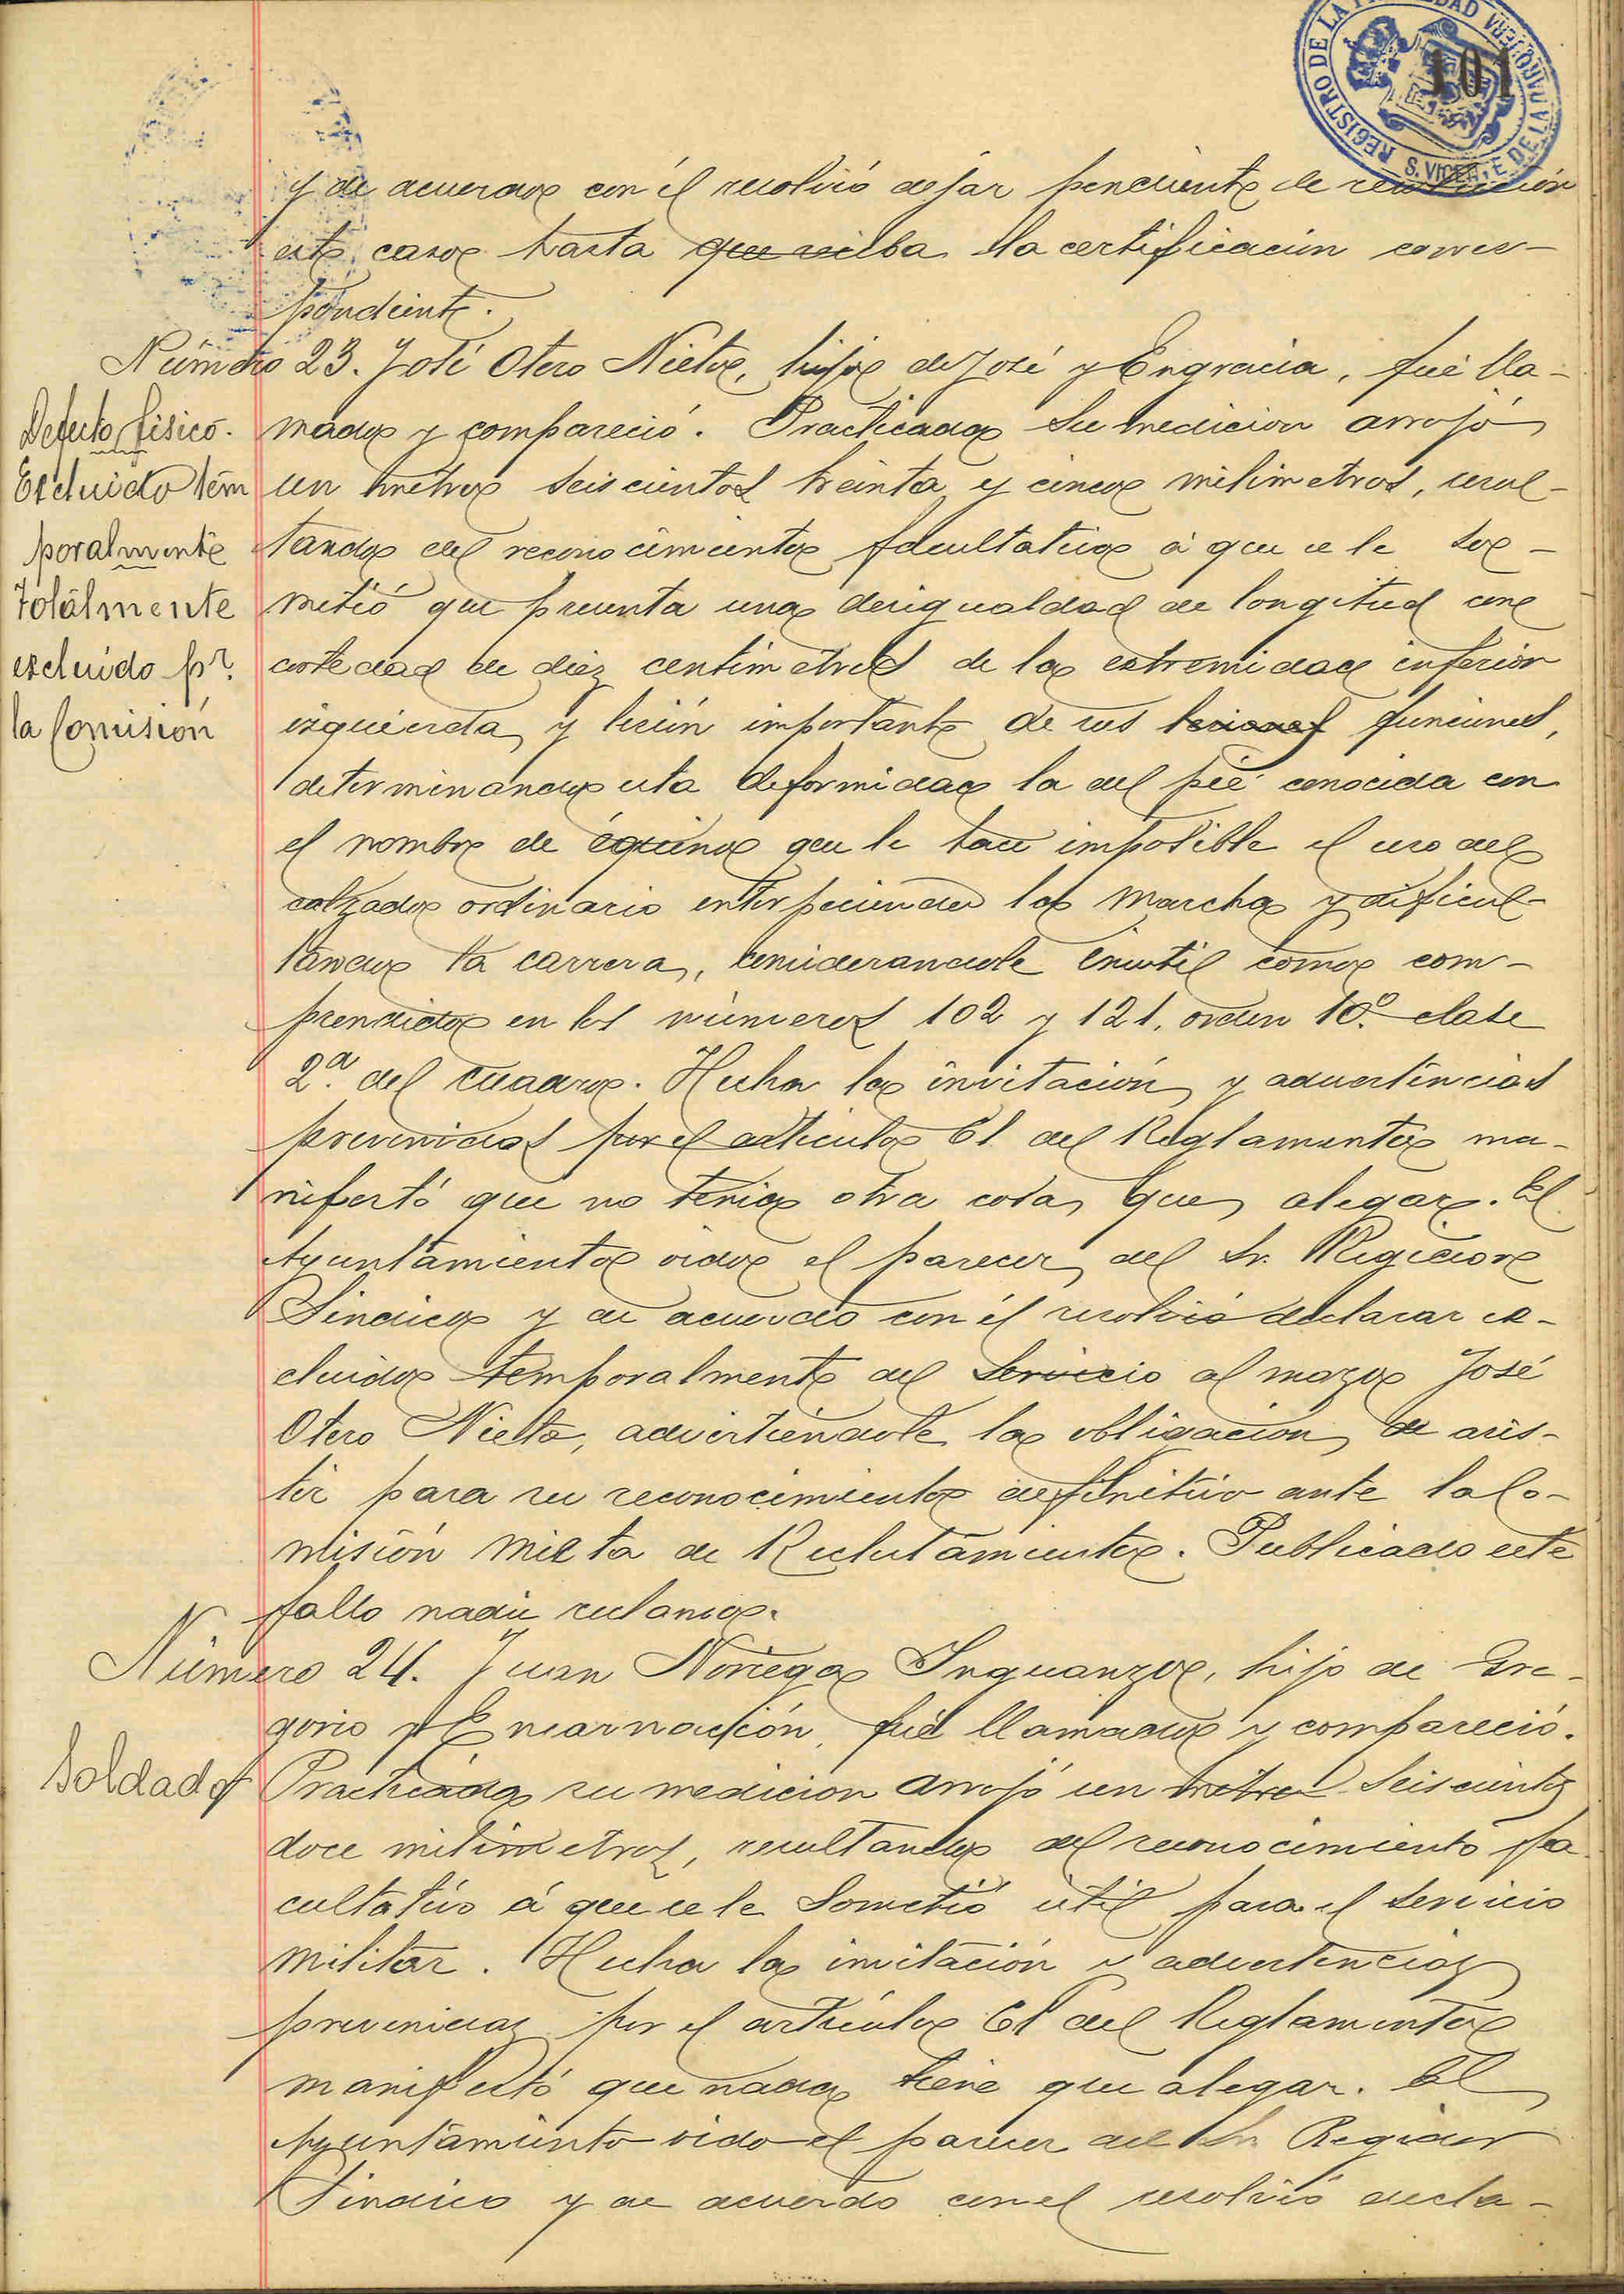 REGISTRO DE LA PROPIEDAD
S. VICENTE DE LA BARQUERA
101
y de acuerdo con él resolvió dejar pendiente de resolución
este caso hasta que reciba la certificación corres-
pondiente.
Número 23. José Otero Nieto, hijo de José y Engracia, fué lla-
Defecto físico.
mado y compareció. Practicada su medicion arrojó
Escluido tem
un metro seiscientos treinta y cinco milimetros, resul-
poralmente
tando del reconocimiento facultativo á que se le so-
Totalmente
metió que presenta una desigualdad de longitud con
escluido pr.
cortedad de diez centimetros de la extremidad inferior
la Comisión
izquierda y lesión importante de sus lesiones funciones,
determinando esta deformidad la del pié conocida con
el nombre de équino que le hace imposible el uso del
calzado ordinario entorpeciendo la marcha y dificul-
tando la carrera, considerandole inutil como com-
prendido en los números 102 y 121, orden 10.º clase
2.ª del cuadro. Hecha la invitación y advertencias
prevenidas por el articulo 61 del Reglamento ma-
nifestó que no tenia otra cosa que alegar. El
Ayuntamiento oido el parecer del Sr. Regidor
Sindico y de acuerdo con él resolvió declarar es-
cluido temporalmente del servicio al mozo José
Otero Nieto, advirtiendole la obligación de asis-
tir para su reconocimiento definitivo ante la Co-
misión mixta de Reclutamiento. Publicado este
fallo nadie reclamó.
Número 24. Juan Noriega Inguanzo, hijo de Gre-
gorio y Encarnación, fué llamado y compareció.
Soldado
Practicada su medicion arrojó un metro seiscientos
doce milimetros, resultando del reconocimiento fa-
cultativo á que se le sometió util para el servicio
militar. Hecha la invitación y advertencias
prevenidas por el artículo 61 del Reglamento
manifestó que nada tiene que alegar. El
Ayuntamiento oido el parecer del Sr. Regidor
Sindico y de acuerdo con el resolvió decla-